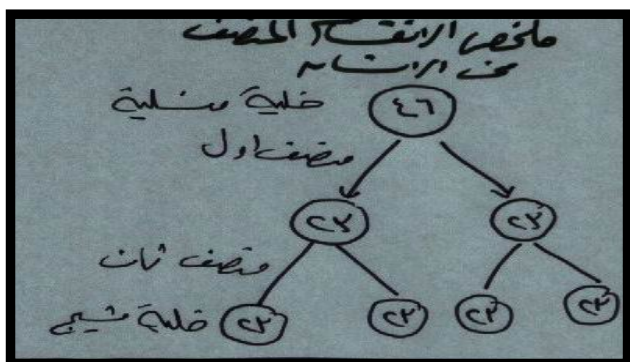 ملخص الانقسام المنصف
في الإنسان
خلية منسلية ٤٦
منصف اول
٢٣ ٢٣
منصف ثان
خلية مشيج ٢٣ ٢٣ ٢٣ ٢٣